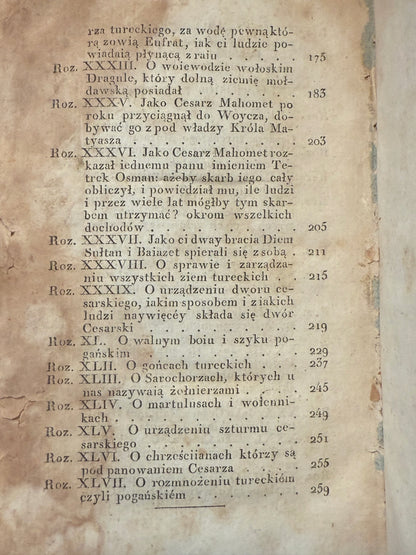 rza tureckiego, za wodę pewną któ-
rą zowią Eufrat, iak ci ludzie po-
wiadaią płynącą z raiu . . . . . 175
Roz. XXXIII. O woiewodzie wołoskim
Dragule, który dolną ziemię moł-
dawską posiadał . . . . . . 183
Roz. XXXV. Jako Cesarz Mahomet po
roku przyciągnął do Woycza, do-
bywać go z pod władzy Króla Ma-
tyasza . . . . . . . . 203
Roz. XXXVI. Jako Cesarz Mahomet roz-
kazał iednemu panu imieniem Te-
trek Osman: ażeby skarb iego cały
obliczył, i powiedział mu, ile ludzi
i przez wiele lat mógłby tym skar-
bem utrzymać? okrom wszelkich
dochodów . . . . . . . 205
Roz. XXXVII. Jako ci dway bracia Diem
Sułtan i Baiazet spierali się z sobą . 211
Roz. XXXVIII. O sprawie i zarządza-
niu wszystkich ziem tureckich . . 215
Roz. XXXIX. O urządzeniu dworu ce-
sarskiego, iakim sposobem i z iakich
ludzi naywięcéy składa się dwór
Cesarski . . . . . . . 219
Roz. XL. O walnym boiu i szyku po-
gańskim . . . . . . . 229
Roz. XLII. O gońcach tureckich . . 237
Roz. XLIII. O Sarochorzach, których u
nas nazywaią żołnierzami . . . . 245
Roz. XLIV. O martulusach i woienni-
kach . . . . . . . . 249
Roz. XLV. O urządzeniu szturmu ce-
sarskiego . . . . . . . 251
Roz. XLVI. O chrześciianach którzy są
pod panowaniem Cesarza . . . . 255
Roz. XLVII. O rozmnożeniu tureckiém
czyli pogańskiém . . . . . . 259